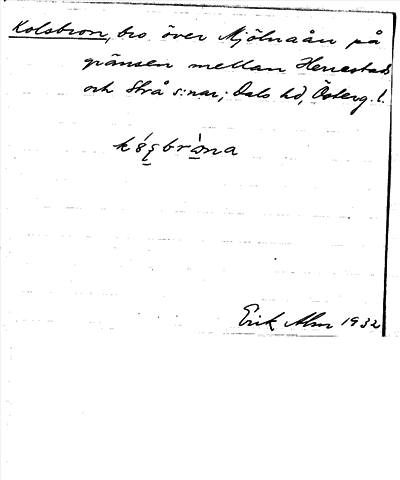 Kolsbron, bro över Mjölnaån på
gränsen mellan Herrestads
och Strå s:nar; Dals hd, Österg. l.
Erik Alm 1932